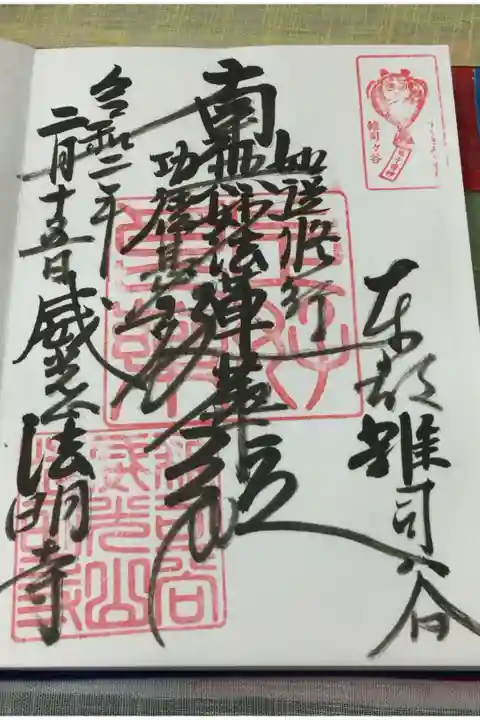 雑司ヶ谷
東都雑司ヶ谷
如説修行
南無妙法蓮華経
功徳甚多
令和二年
二月十五日
威光山法明寺